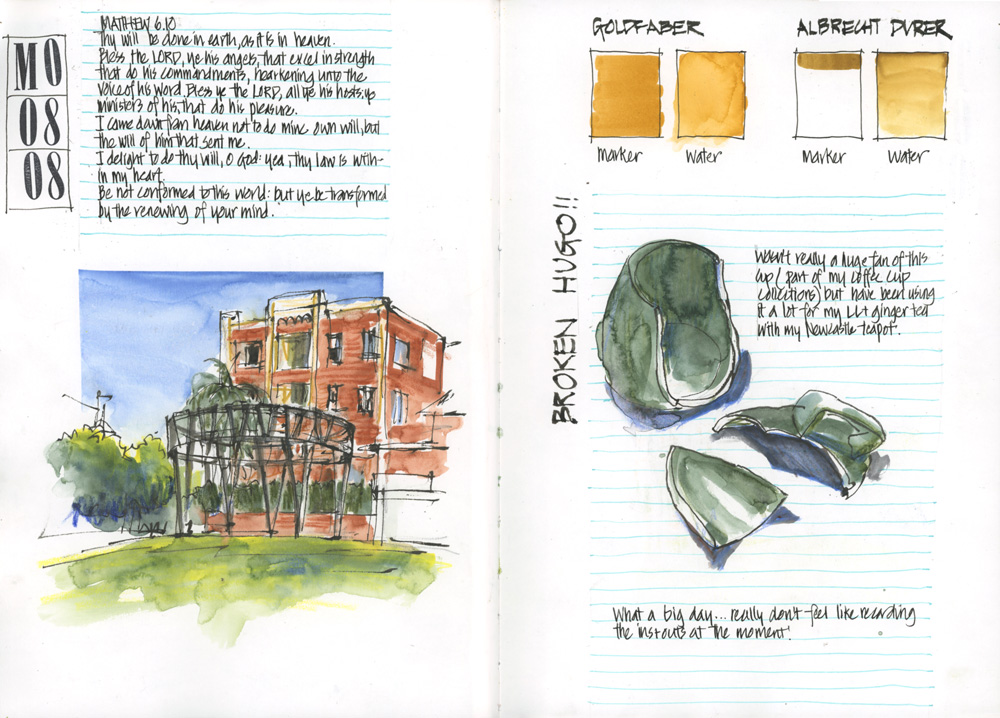 MO
08
08
MATTHEW 6.10
Thy will be done in earth, as it is in heaven.
Bless the LORD, ye his angels, that excel in strength
that do his commandments, hearkening unto the
voice of his word. Bless ye the LORD, all ye his hosts; ye
ministers of his, that do his pleasure.
I came down from heaven not to do mine own will, but
the will of him that sent me.
I delight to do thy will, O God: yea, thy law is with-
in my heart.
Be not conformed to this world: but ye be transformed
by the renewing of your mind.
GOLDFABER
Marker
Water
ALBRECHT DURER
Marker
Water
BROKEN HUGO!!
Wasn't really a huge fan of this
cup (part of my coffee cup
collections) but have been using
it a lot for my LL+ ginger tea
with my Newcastle teapot.
What a big day... really don't feel like recording
the ins+outs at the moment!